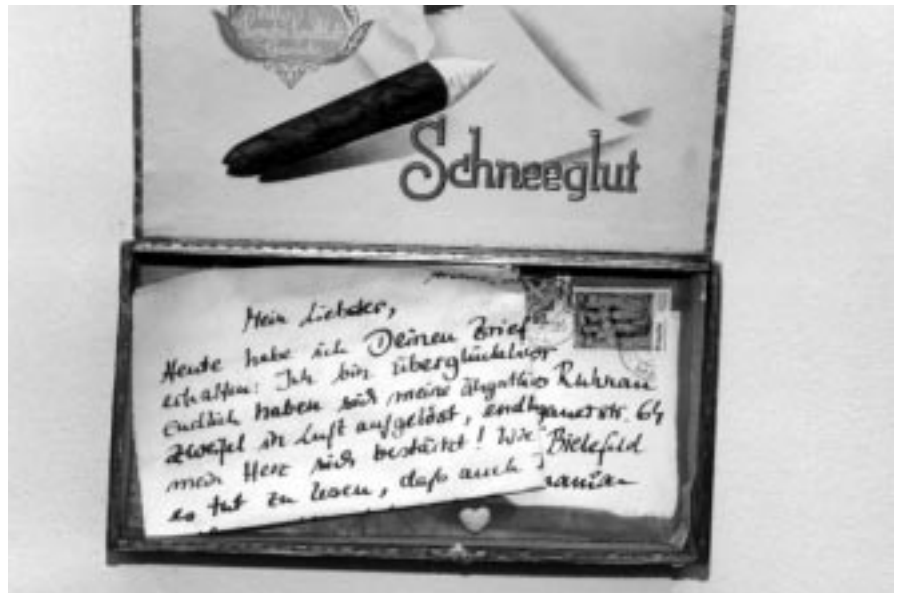 Schneeglut
Mein Liebster,
Heute habe ich Deinen Brief
erhalten: Ich bin überglücklich
Endlich haben sich meine
zweifel in Luft aufgelöst, endl
mein Herz sich bestärkt! Wie
es tut zu lesen, daß auch
Ruhrau
str. 64
Bielefeld